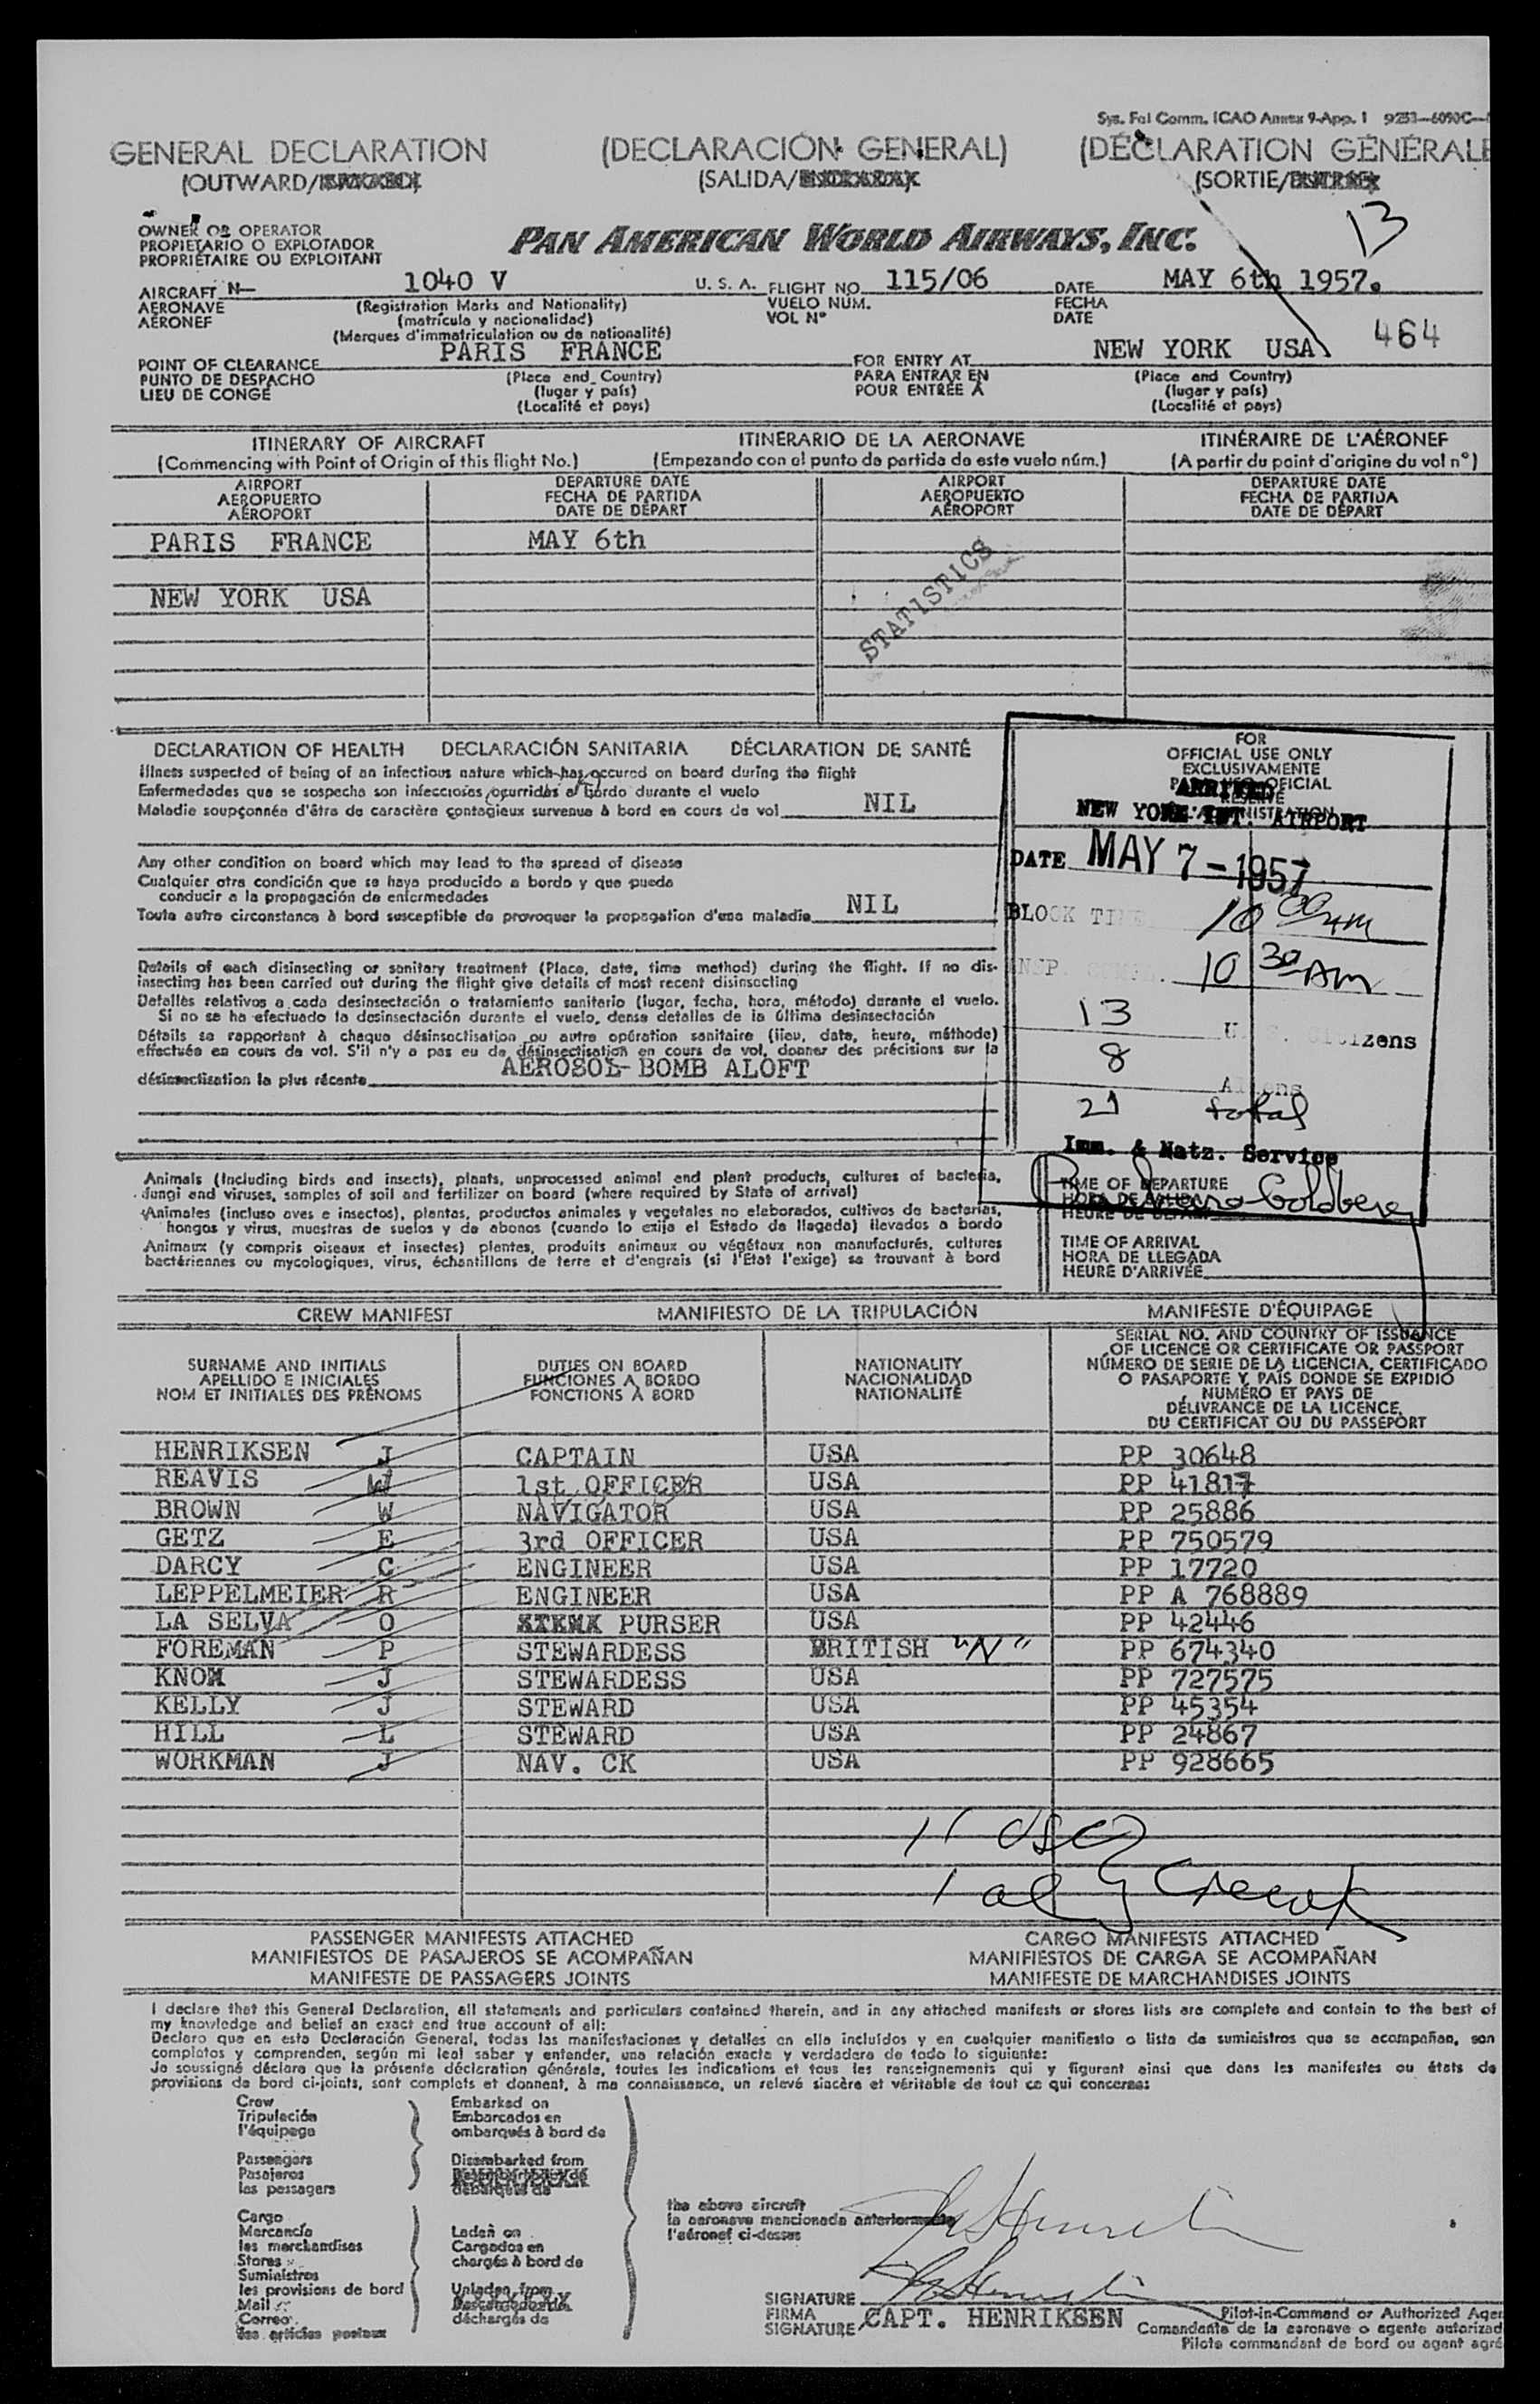 Sys. Fal Comm. ICAO Annex 9-App. 1 9253-6090C-
GENERAL DECLARATION (DECLARACIÓN GENERAL) (DÉCLARATION GÉNÉRALE
(OUTWARD/ (SALIDA/ (SORTIE/
13
OWNER OR OPERATOR
PROPIETARIO O EXPLOTADOR
PROPRIÉTAIRE OU EXPLOITANT
PAN AMERICAN WORLD AIRWAYS, INC.
AIRCRAFT N- 1040 V U. S. A. FLIGHT NO. 115/06 DATE MAY 6th 1957.
AERONAVE (Registration Marks and Nationality) VUELO NÚM. FECHA
AÉRONEF (matrícula y nacionalidad) VOL Nº DATE
(Marques d'immatriculation ou de nationalité)
464
POINT OF CLEARANCE PARIS FRANCE FOR ENTRY AT NEW YORK USA
PUNTO DE DESPACHO (Place and Country) PARA ENTRAR EN (Place and Country)
LIEU DE CONGÉ (lugar y país) POUR ENTRÉE À (lugar y país)
(Localité et pays) (Localité et pays)
ITINERARY OF AIRCRAFT ITINERARIO DE LA AERONAVE ITINÉRAIRE DE L'AÉRONEF
(Commencing with Point of Origin of this flight No.) (Empezando con el punto de partida de este vuelo núm.) (A partir du point d'origine du vol nº)
AIRPORT DEPARTURE DATE AIRPORT DEPARTURE DATE
AEROPUERTO FECHA DE PARTIDA AEROPUERTO FECHA DE PARTIDA
AÉROPORT DATE DE DÉPART AÉROPORT DATE DE DÉPART
PARIS FRANCE MAY 6th
NEW YORK USA
STATISTICS
DECLARATION OF HEALTH DECLARACIÓN SANITARIA DÉCLARATION DE SANTÉ
Illness suspected of being of an infectious nature which has occured on board during the flight
Enfermedades que se sospecha son infecciosas ocurridas a bordo durante el vuelo
Maladie soupçonnée d'être de caractère contagieux survenue à bord en cours de vol NIL
Any other condition on board which may lead to the spread of disease
Cualquier otra condición que se haya producido a bordo y que pueda
conducir a la propagación de enfermedades
Toute autre circonstance à bord susceptible de provoquer la propagation d'une maladie NIL
Details of each disinsecting or sanitary treatment (Place, date, time method) during the flight. If no dis-
insecting has been carried out during the flight give details of most recent disinsecting
Detalles relativos a cada desinsectación o tratamiento sanitario (lugar, fecha, hora, método) durante el vuelo.
Si no se ha efectuado la desinsectación durante el vuelo, dense detalles de la última desinsectación
Détails se rapportant à chaque désinsectisation ou autre opération sanitaire (lieu, date, heure, méthode)
effectuée en cours de vol. S'il n'y a pas eu de désinsectisation en cours de vol, donner des précisions sur la
désinsectisation la plus récente AEROSOL BOMB ALOFT
FOR
OFFICIAL USE ONLY
EXCLUSIVAMENTE
PARA USO OFICIAL
RESERVÉ
ARRIVED
NEW YORK INT. AIRPORT
DATE MAY 7-1957
BLOCK TIME 10 00 AM
INSP. COMPL. 10 30 AM
13 U. S. Citizens
8 Aliens
21 total
Imm. & Natz. Service
Goldberg
TIME OF DEPARTURE
HORA DE SALIDA
HEURE DE DÉPART
TIME OF ARRIVAL
HORA DE LLEGADA
HEURE D'ARRIVÉE
Animals (Including birds and insects), plants, unprocessed animal and plant products, cultures of bacteria,
fungi and viruses, samples of soil and fertilizer on board (where required by State of arrival)
Animales (incluso aves e insectos), plantas, productos animales y vegetales no elaborados, cultivos de bacterias,
hongos y virus, muestras de suelos y de abonos (cuando lo exija el Estado de llegada) llevados a bordo
Animaux (y compris oiseaux et insectes) plantes, produits animaux ou végétaux non manufacturés, cultures
bactériennes ou mycologiques, virus, échantillons de terre et d'engrais (si l'Etat l'exige) se trouvant à bord
CREW MANIFEST MANIFIESTO DE LA TRIPULACIÓN MANIFESTE D'ÉQUIPAGE
SURNAME AND INITIALS DUTIES ON BOARD NATIONALITY SERIAL NO. AND COUNTRY OF ISSUANCE
APELLIDO E INICIALES FUNCIONES A BORDO NACIONALIDAD OF LICENCE OR CERTIFICATE OR PASSPORT
NOM ET INITIALES DES PRÉNOMS FONCTIONS À BORD NATIONALITÉ NÚMERO DE SERIE DE LA LICENCIA, CERTIFICADO
O PASAPORTE Y PAÍS DONDE SE EXPIDIÓ
NUMÉRO ET PAYS DE
DÉLIVRANCE DE LA LICENCE,
DU CERTIFICAT OU DU PASSEPORT
HENRIKSEN J CAPTAIN USA PP 30648
REAVIS W 1st OFFICER USA PP 41817
BROWN W NAVIGATOR USA PP 25886
GETZ E 3rd OFFICER USA PP 750579
DARCY C ENGINEER USA PP 17720
LEPPELMEIER R ENGINEER USA PP A 768889
LA SELVA O PURSER USA PP 42446
FOREMAN P STEWARDESS BRITISH "N" PP 674340
KNOX J STEWARDESS USA PP 727575
KELLY J STEWARD USA PP 45354
HILL L STEWARD USA PP 24867
WORKMAN J NAV. CK USA PP 928665
11 USC
1 al
PASSENGER MANIFESTS ATTACHED CARGO MANIFESTS ATTACHED
MANIFIESTOS DE PASAJEROS SE ACOMPAÑAN MANIFIESTOS DE CARGA SE ACOMPAÑAN
MANIFESTE DE PASSAGERS JOINTS MANIFESTE DE MARCHANDISES JOINTS
I declare that this General Declaration, all statements and particulars contained therein, and in any attached manifests or stores lists are complete and contain to the best of
my knowledge and belief an exact and true account of all:
Declaro que en esta Declaración General, todas las manifestaciones y detalles en ella incluídos y en cualquier manifiesto o lista de suministros que se acompañan, son
completos y comprenden, según mi leal saber y entender, una relación exacta y verdadera de todo lo siguiente:
Je soussigné déclare que la présente déclaration générale, toutes les indications et tous les renseignements qui y figurent ainsi que dans les manifestes ou états de
provisions de bord ci-joints, sont complets et donnent, à ma connaissance, un relevé sincère et véritable de tout ce qui concerne:
Crew Embarked on
Tripulación Embarcados en
l'équipage embarqués à bord de
Passengers Disembarked from
Pasajeros
les passagers débarqués de
the above aircraft
la aeronave mencionada anteriormente
l'aéronef ci-dessus
Cargo
Mercancía Laden on
les marchandises Cargados en
Stores chargés à bord de
Suministros
les provisions de bord Unladen from
Mail
Correo déchargés de
les articles postaux
SIGNATURE
FIRMA
SIGNATURE CAPT. HENRIKSEN
Pilot-in-Command or Authorized Agen
Comandante de la aeronave o agente autorizad
Pilote commandant de bord ou agent agré